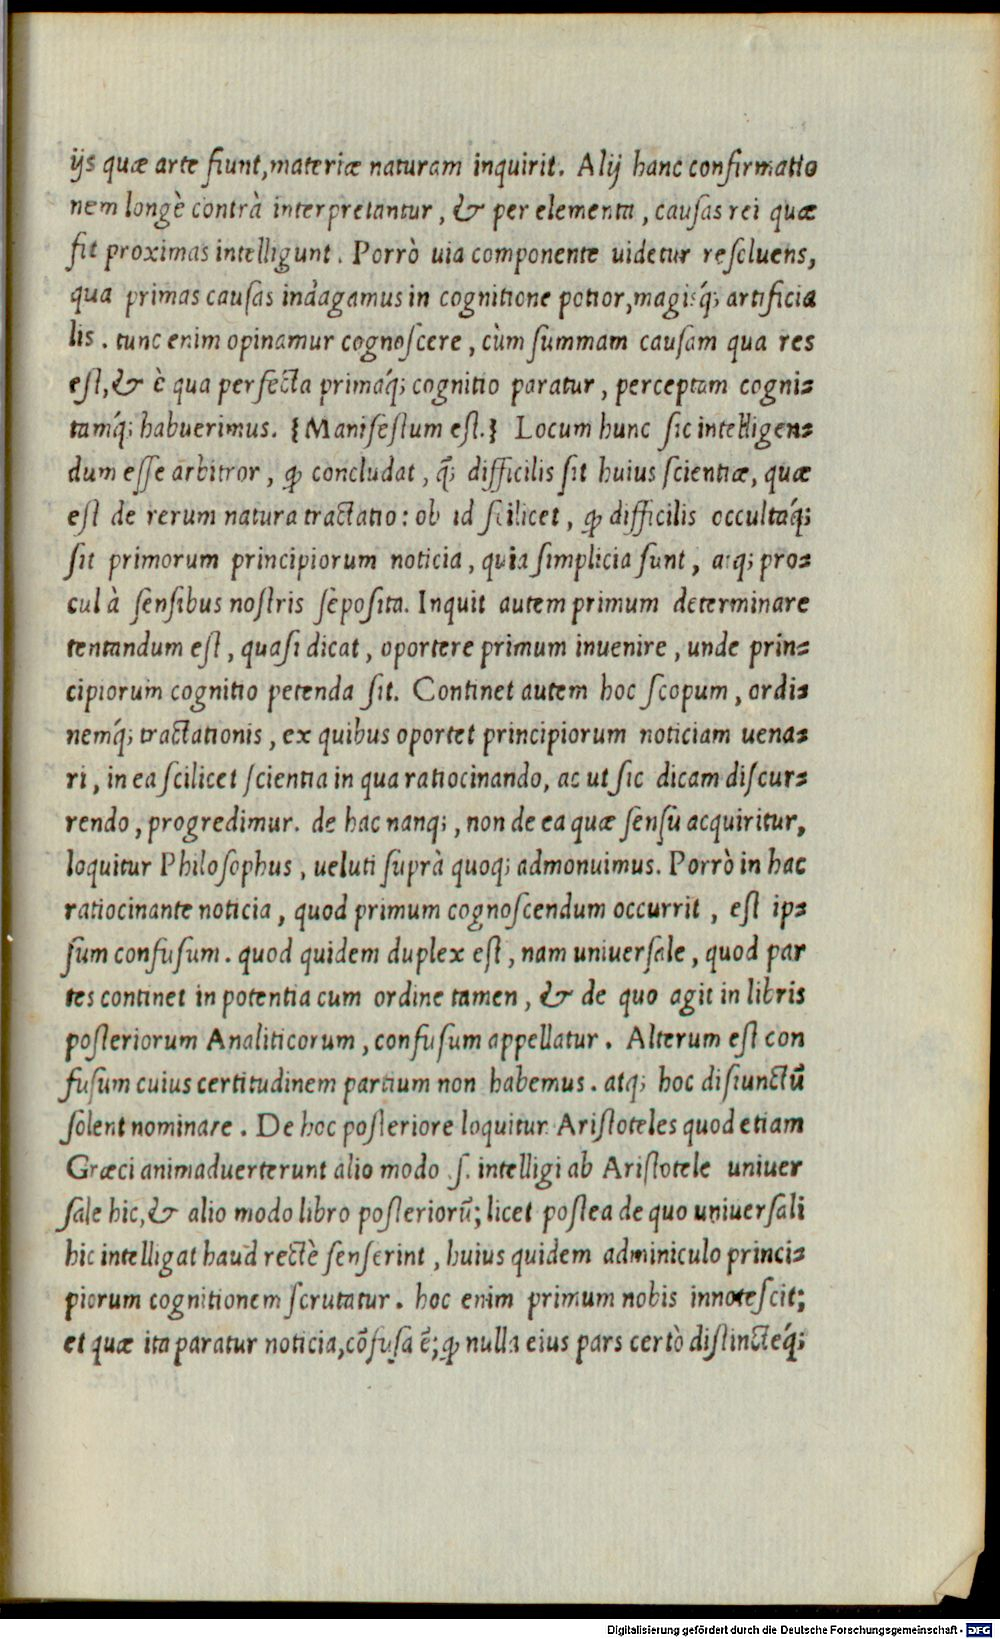 ijs quæ arte fiunt, materiæ naturam inquirit. Alij hanc confirmatio
nem longè contrà interpretantur, & per elementa, causas rei quæ
sit proximas intelligunt. Porrò uia componente uidetur resoluens,
qua primas causas indagamus in cognitione potior, magisq́; artificia
lis. tunc enim opinamur cognoscere, cùm summam causam qua res
est, & è qua perfecta primaq́; cognitio paratur, perceptam cogni⸗
tamq́; habuerimus. {Manifestum est.} Locum hunc sic intelligen⸗
dum esse arbitror, ꝙ concludat, q̃; difficilis sit huius scientiæ, quæ
est de rerum natura tractatio: ob id scilicet, ꝙ difficilis occultaq́;
sit primorum principiorum noticia, quia simplicia sunt, atq; pro⸗
cul à sensibus nostris sèposita. Inquit autem primum determinare
tentandum est, quasi dicat, oportere primum inuenire, unde prin⸗
cipiorum cognitio petenda sit. Continet autem hoc scopum, ordi⸗
nemq́; tractationis, ex quibus oportet principiorum noticiam uena⸗
ri, in ea scilicet scientia in qua ratiocinando, ac ut sic dicam discur⸗
rendo, progredimur. de hac nanq;, non de ea quæ sensu acquiritur,
loquitur Philosophus, ueluti suprà quoq; admonuimus. Porrò in hac
ratiocinante noticia, quod primum cognoscendum occurrit, est ip⸗
sum confusum. quod quidem duplex est, nam uniuersale, quod par
tes continet in potentia cum ordine tamen, & de quo agit in libris
posteriorum Analiticorum, confusum appellatur. Alterum est con
fusum cuius certitudinem partium non habemus. atq; hoc disiunctũ
solent nominare. De hoc posteriore loquitur Aristoteles quod etiam
Græci animaduerterunt alio modo s. intelligi ab Aristotele uniuer
sale hic, & alio modo libro posteriorũ; licet postea de quo uniuersali
hic intelligat haud rectè senserint, huius quidem adminiculo princi⸗
piorum cognitionem scrutatur. hoc enim primum nobis innotescit;
et quæ ita paratur noticia, cõfusa ẽ; ꝙ nulla eius pars certò distincteq́;
Digitalisierung gefördert durch die Deutsche Forschungsgemeinschaft - DFG